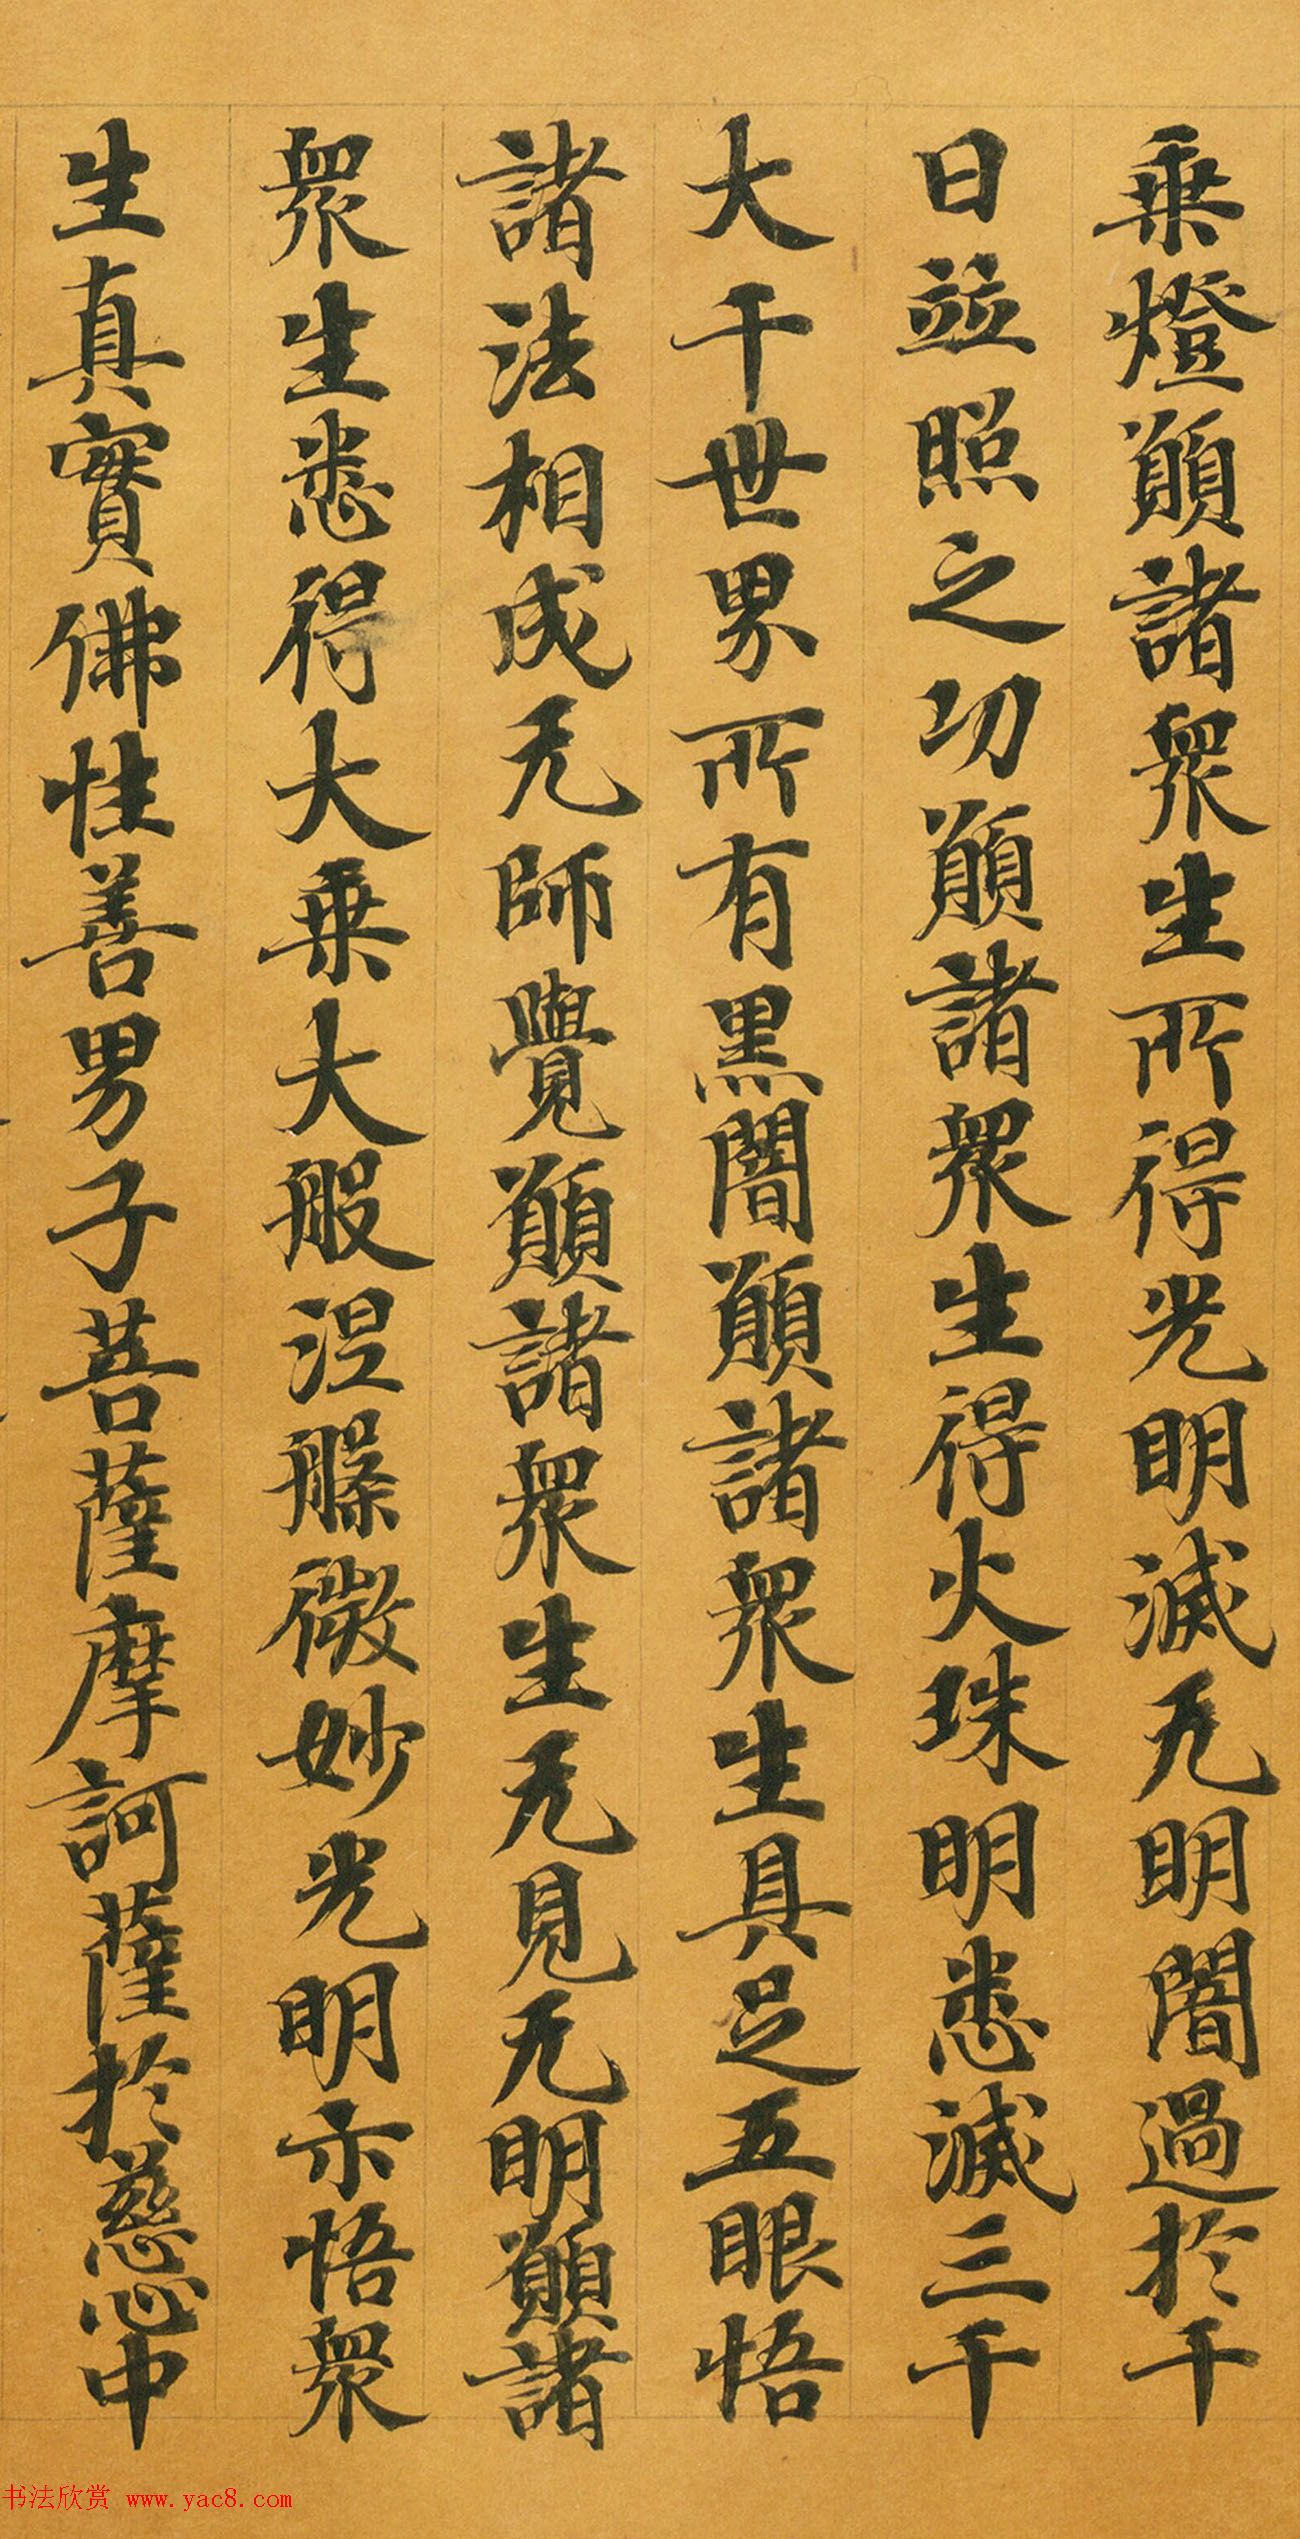 乗燈願諸衆生所得光明滅无明闇過於千
日並照之功願諸衆生得火珠明悉滅三千
大千世界所有黒闇願諸衆生具足五眼悟
諸法相成无師覺願諸衆生无見无明願諸
衆生悉得大乗大般涅槃微妙光明示悟衆
生真實佛性善男子菩薩摩訶薩於慈心中
书法欣赏 www.yac8.com